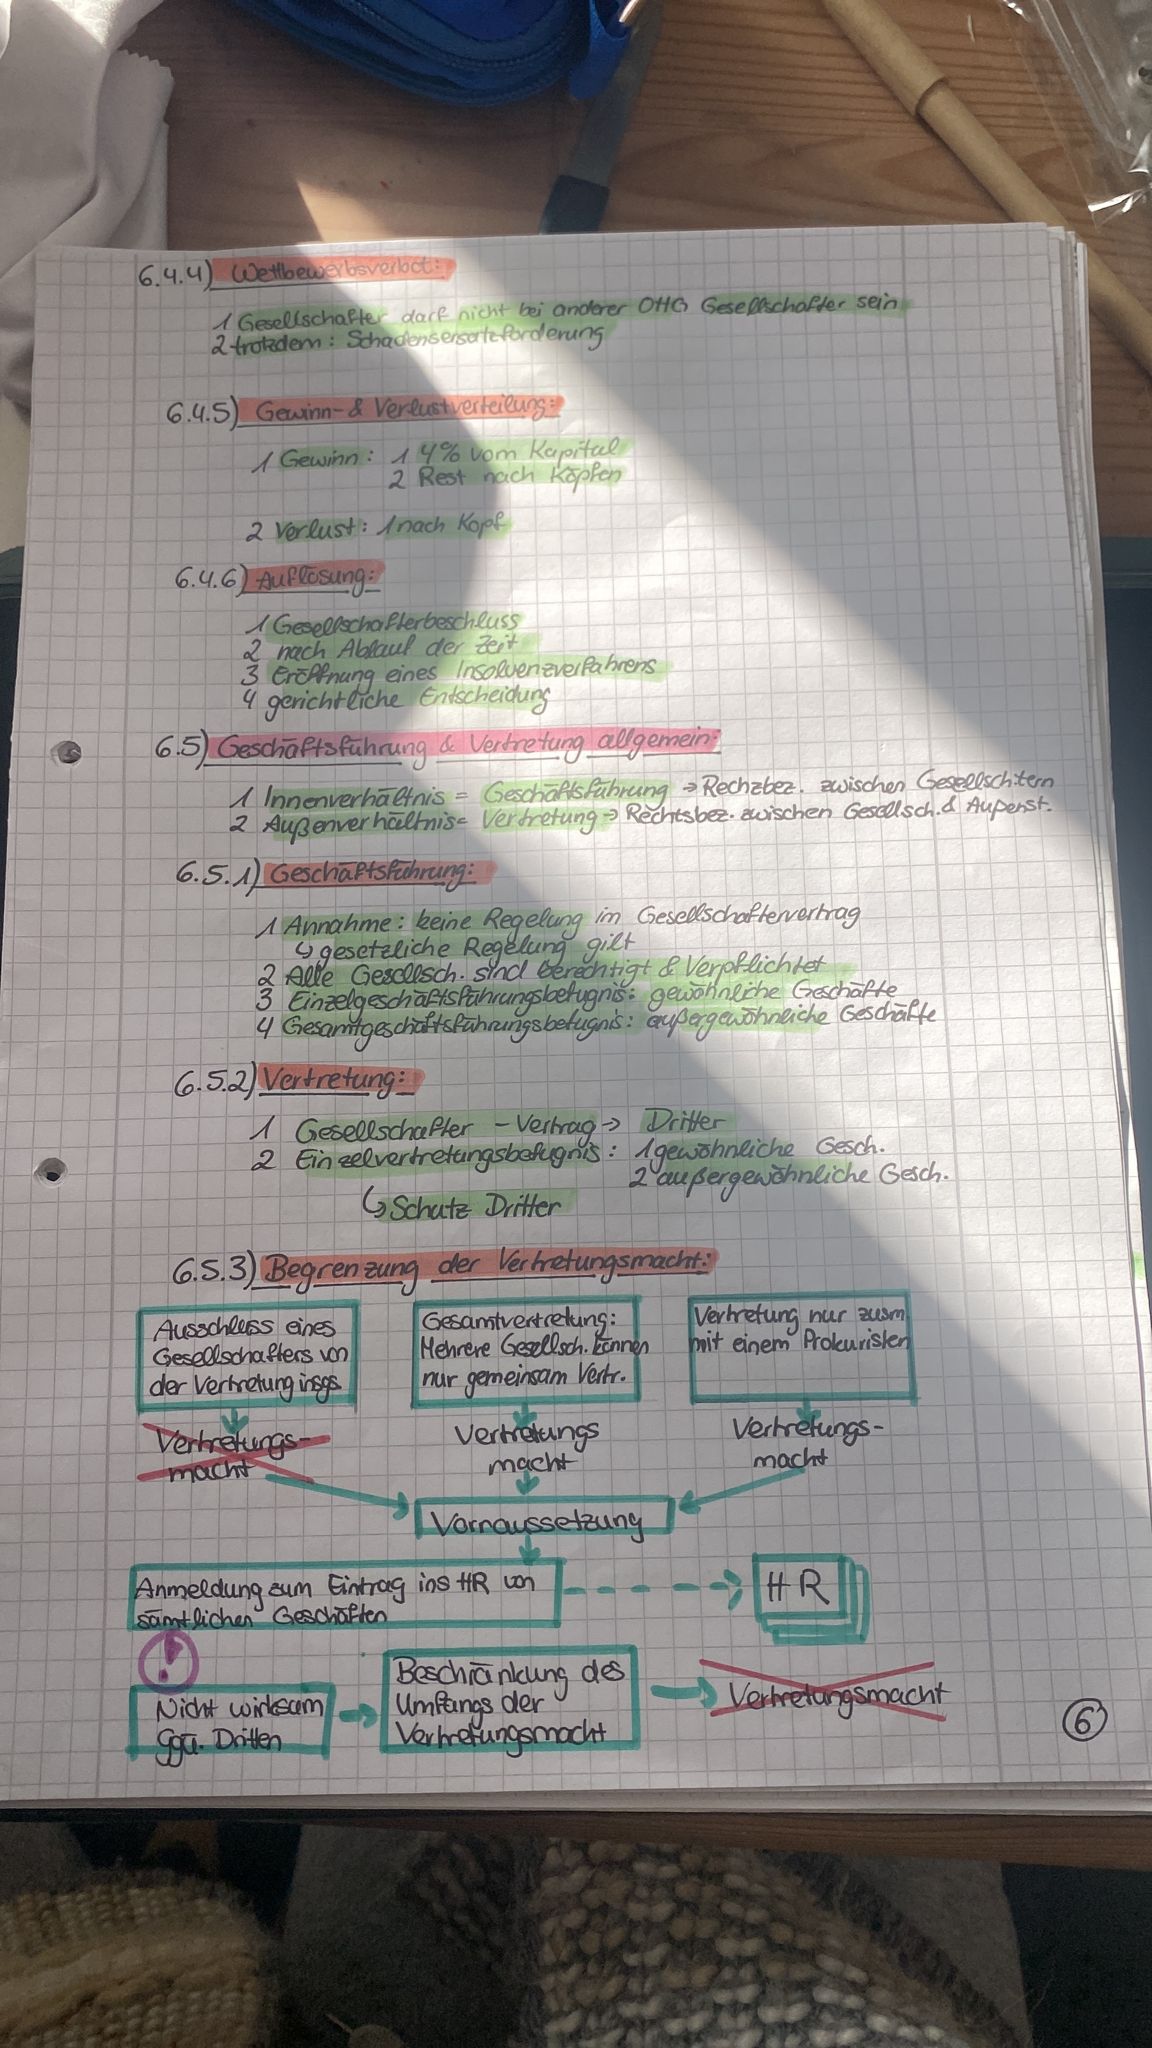 6.4.4) Wettbewerbsverbot:
1 Gesellschafter darf nicht bei anderer OHG Gesellschafter sein
2 trotzdem: Schadensersatzforderung
6.4.5) Gewinn- & Verlustverteilung:
1 Gewinn: 1 4% vom Kapital
2 Rest nach Köpfen
2 Verlust: 1 nach Kopf
6.4.6) Auflösung:
1 Gesellschafterbeschluss
2 nach Ablauf der Zeit
3 Eröffnung eines Insolvenzverfahrens
4 gerichtliche Entscheidung
6.5) Geschäftsführung & Vertretung allgemein:
1 Innenverhältnis = Geschäftsführung → Rechzbez. zwischen Gesellsch.tern
2 Außenverhältnis = Vertretung → Rechtsbez. zwischen Gesellsch. & Außenst.
6.5.1) Geschäftsführung:
1 Annahme: keine Regelung im Gesellschaftervertrag
↳ gesetzliche Regelung gilt
2 Alle Gesellsch. sind berechtigt & Verpflichtet
3 Einzelgeschäftsführungsbefugnis: gewöhnliche Geschäfte
4 Gesamtgeschäftsführungsbefugnis: außergewöhnliche Geschäfte
6.5.2) Vertretung:
1 Gesellschafter - Vertrag → Dritter
2 Einzelvertretungsbefugnis: 1 gewöhnliche Gesch.
2 außergewöhnliche Gesch.
↳ Schutz Dritter
6.5.3) Begrenzung der Vertretungsmacht:
Ausschluss eines
Gesellschafters von
der Vertretung insgs.
Vertretungs-
macht
Gesamtvertretung:
Mehrere Gesellsch. können
nur gemeinsam Vertr.
Vertretungs
macht
Vertretung nur zusm
mit einem Prokuristen
Vertretungs-
macht
Vorraussetzung
Anmeldung zum Eintrag ins HR von
sämtlichen Geschäften
HR
!
Nicht wirksam
ggü. Dritten
Beschränkung des
Umfangs der
Vertretungsmacht
Vertretungsmacht
6